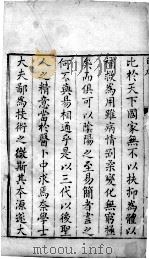 比於天下國家無不以扶抑為體以
補救為用雖病情變化無窮
矣而俱可以陰陽之至易簡者盡之
何不與易相通乎是以三代以後聖
人之精意當於醫中求焉奈學士
大夫鄙為技術之微斯其本源遂大